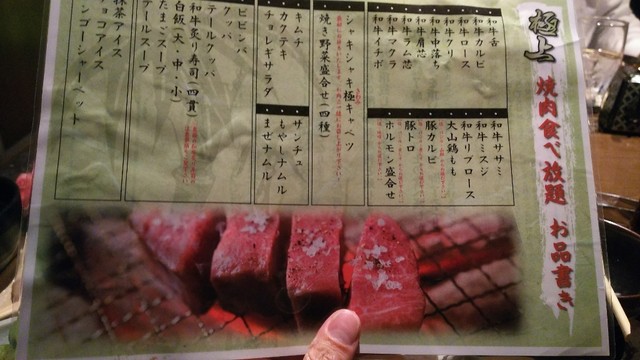 極上 焼肉食べ放題 お品書き
和牛舌
和牛カルビ
和牛ロース
和牛クリ
和牛中落ち
和牛肩芯
和牛ラム芯
和牛マクラ
和牛イチボ
和牛ササミ
和牛ミスジ
和牛リブロース
大山鶏もも
豚カルビ
豚トロ
ホルモン盛合せ
シャキシャキ極キャベツ
焼き野菜盛合せ(四種)
キムチ
カクテキ
チョレギサラダ
サンチュ
もやしナムル
まぜナムル
ビビンバ
クッパ
テールクッパ
和牛炙り寿司(四貫)
白飯(大・中・小)
たまごスープ
テールスープ
抹茶アイス
チョコアイス
マンゴーシャーベット